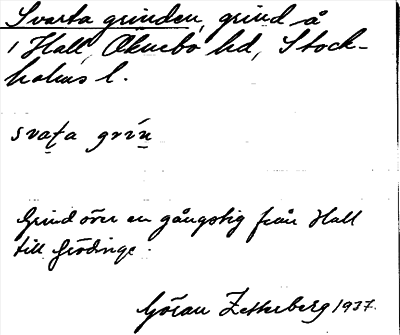 Svarta grinden, grind å
i Hall, Öknebo hd, Stock-
holms l.
svaṭa grín̲
Grind över en gångstig från Hall
till Grödinge.
Göran Zetterberg 1937.